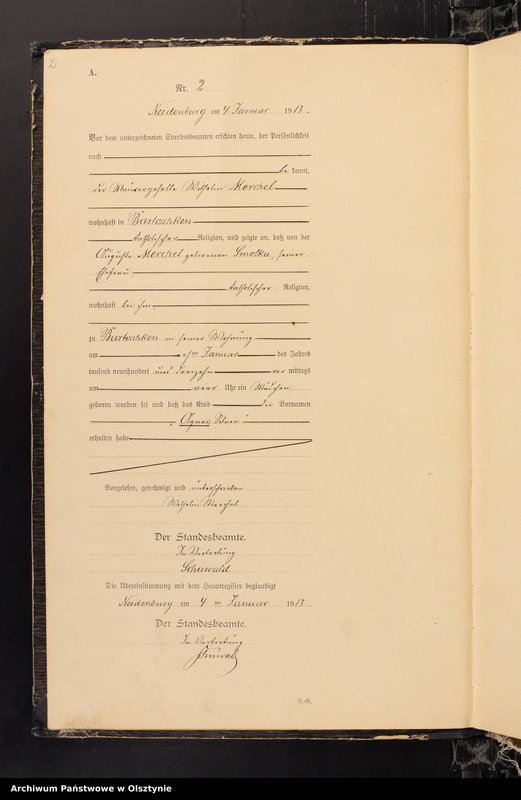 2
A.
Nr. 2
Neidenburg am 4. Januar 1913.
Vor dem unterzeichneten Standesbeamten erschien heute, der Persönlichkeit
nach
be kannt,
der Maurergeselle Wilhelm Merchel
wohnhaft in Bartoschken
katholischer Religion, und zeigte an, daß von der
Auguste Merchel geborenen Smolka, seiner
Ehefrau
katholischer Religion,
wohnhaft bei ihm
zu Bartoschken in seiner Wohnung
am Januar des Jahres
tausend neunhundert und dreizehn vor mittags
um vier Uhr ein Mädchen
geboren worden sei und daß das Kind die Vornamen
Agnes
erhalten habe
Vorgelesen, genehmigt und unterschrieben
Wilhelm Merchel
Der Standesbeamte.
In Vertretung
Schuwald
Die Übereinstimmung mit dem Hauptregister beglaubigt
Neidenburg am 4 ten Januar 1913.
Der Standesbeamte.
In Vertretung
Archiwum Państwowe w Olsztynie